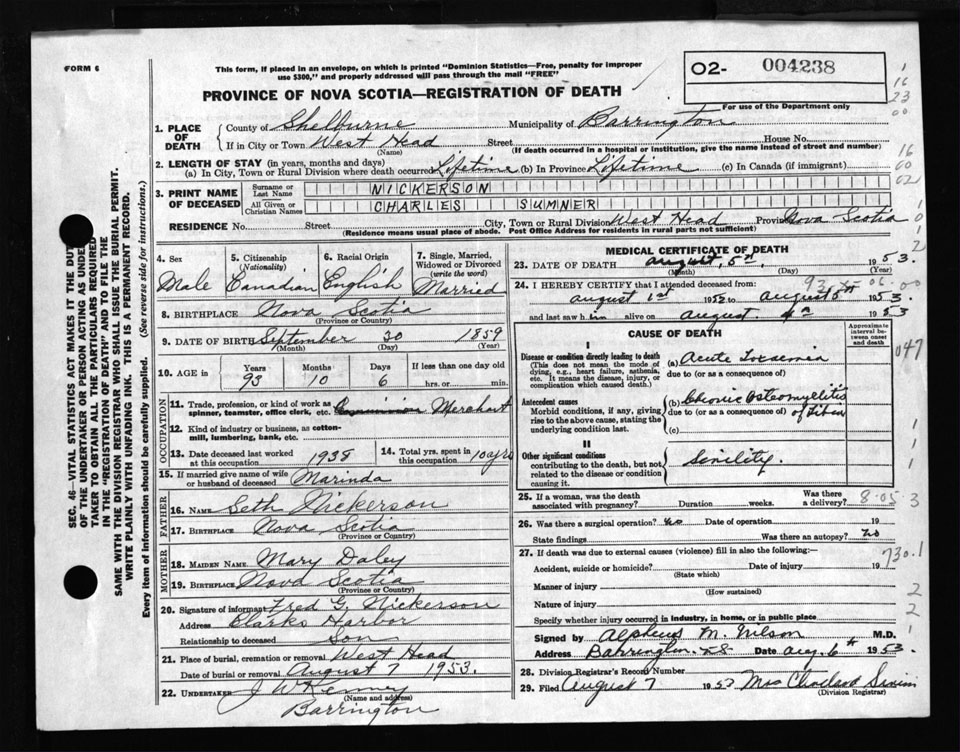 FORM 6
This form, if placed in an envelope, on which is printed "Dominion Statistics—Free, penalty for improper
use $300," and properly addressed will pass through the mail "FREE"
PROVINCE OF NOVA SCOTIA—REGISTRATION OF DEATH
02- 004238
For use of the Department only
1. PLACE OF DEATH
County of Shelburne Municipality of Barrington
If in City or Town West Head Street House No.
(Name) (If death occurred in a hospital or institution, give the name instead of street and number)
2. LENGTH OF STAY (in years, months and days)
(a) In City, Town or Rural Division where death occurred Lifetime (b) In Province Lifetime (c) In Canada (if immigrant)
3. PRINT NAME OF DECEASED
Surname or Last Name NICKERSON
All Given or Christian Names CHARLES SUMNER
RESIDENCE No. Street City, Town or Rural Division West Head Province Nova Scotia
(Residence means usual place of abode. Post Office Address for residents in rural parts not sufficient)
4. Sex Male
5. Citizenship (Nationality) Canadian
6. Racial Origin English
7. Single, Married, Widowed or Divorced (write the word) Married
8. BIRTHPLACE Nova Scotia
(Province or Country)
9. DATE OF BIRTH September 30 1859
(Month) (Day) (Year)
10. AGE in Years 93 Months 10 Days 6 If less than one day old
hrs. or min.
OCCUPATION
11. Trade, profession, or kind of work as
spinner, teamster, office clerk, etc. Merchant
12. Kind of industry or business, as cotton-
mill, lumbering, bank, etc.
13. Date deceased last worked
at this occupation 1938
14. Total yrs. spent in
this occupation 10 yrs
15. If married give name of wife
or husband of deceased Marinda
FATHER
16. NAME Seth Nickerson
17. BIRTHPLACE Nova Scotia
(Province or Country)
MOTHER
18. MAIDEN NAME Mary Daley
19. BIRTHPLACE Nova Scotia
(Province or Country)
20. Signature of informant Fred G. Nickerson
Address Clarks Harbor
Relationship to deceased Son
21. Place of burial, cremation or removal West Head
Date of burial or removal August 7 1953.
22. UNDERTAKER J W Kenney
(Name and address)
Barrington
MEDICAL CERTIFICATE OF DEATH
23. DATE OF DEATH August, 5th, 1953.
(Month) (Day) (Year)
24. I HEREBY CERTIFY that I attended deceased from:
August 1st 1952 to August 5th 1953.
and last saw him alive on August 4th 1953
CAUSE OF DEATH
Approximate interval between onset and death
I
Disease or condition directly leading to death
(This does not mean the mode of dying, e.g., heart failure, asthenia, etc. It means the disease, injury, or complication which caused death.)
(a) Acute Toxaemia
due to (or as a consequence of)
Antecedent causes
Morbid conditions, if any, giving rise to the above cause, stating the underlying condition last.
(b) Chronic Osteomyelitis
due to (or as a consequence of) of Tibia
(c)
II
Other significant conditions
contributing to the death, but not related to the disease or condition causing it.
Senility.
25. If a woman, was the death
associated with pregnancy? Duration weeks. Was there a delivery?
26. Was there a surgical operation? No Date of operation 19
State findings Was there an autopsy? No
27. If death was due to external causes (violence) fill in also the following:—
Accident, suicide or homicide? Date of injury 19
(State which)
Manner of injury
(How sustained)
Nature of injury
Specify whether injury occurred in industry, in home, or in public place
Signed by Alpheus M. Wilson M.D.
Address Barrington NS Date Aug. 6th 1953.
28. Division Registrar's Record Number
29. Filed August 7 1953 Mrs
(Division Registrar)
SEC. 46 VITAL STATISTICS ACT MAKES IT THE DUTY
OF THE UNDERTAKER OR PERSON ACTING AS UNDER-
TAKER TO OBTAIN ALL THE PARTICULARS REQUIRED
IN THE "REGISTRATION OF DEATH" AND TO FILE THE
SAME WITH THE DIVISION REGISTRAR WHO SHALL ISSUE THE BURIAL PERMIT.
WRITE PLAINLY WITH UNFADING INK. THIS IS A PERMANENT RECORD.
Every item of information should be carefully supplied. (See reverse side for instructions.)
1
16
23
00
16
00
02
93
06.00
047
8.05 3
730.1
2
2